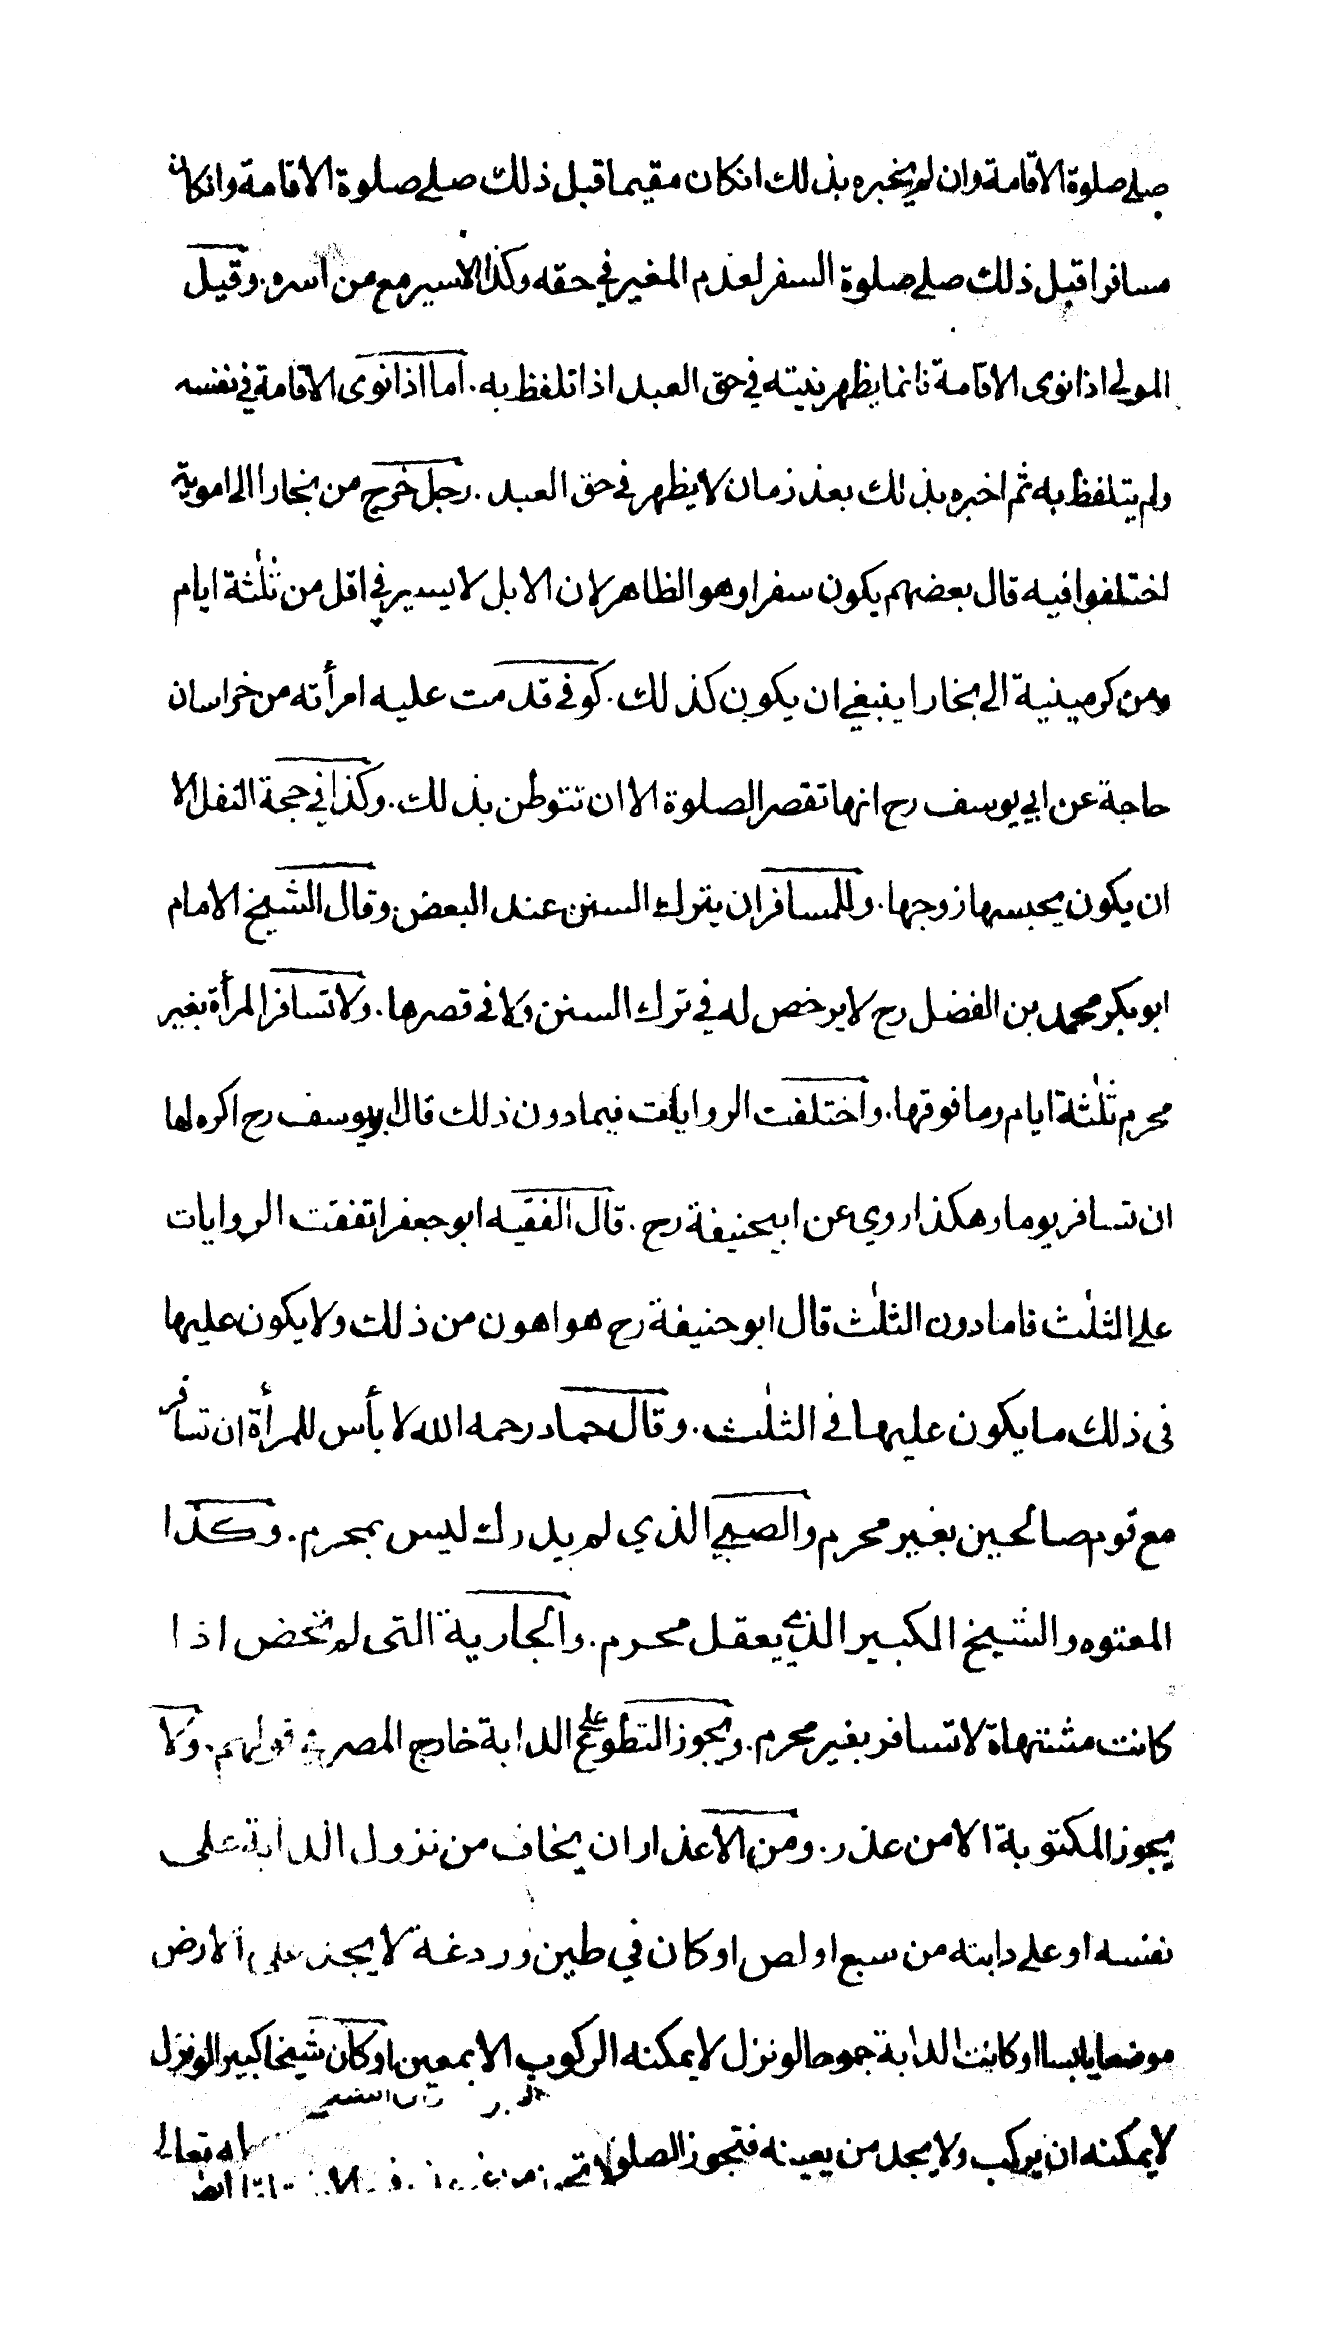 صلى صلوة الاقامة وان لم يخبره بذلك انكان مقيما قبل ذلك صلى صلوة الاقامة وانكان
مسافرا قبل ذلك صلى صلوة السفر لعدم المغير في حقه وكذا الاسير مع من اسره. وقيل
المولى اذا نوى الاقامة فانما يظهر نيته في حق العبد اذا تلفظ به. اما اذا نوى الاقامة في نفسه
ولم يتلفظ به ثم اخبره بذلك بعد زمان لا يظهر في حق العبد. رجل خرج من بخارا الى امويه
اختلفوا فيه قال بعضهم يكون سفرا وهو الظاهر لان الابل لا يسير في اقل من ثلٰثة ايام
ومن كرمينية الى بخارا ينبغي ان يكون كذلك. كوفى قدمت عليه امرأته من خراسان
حاجة عن ابي يوسف رح انها تقصر الصلوة الا ان تتوطن بذلك. وكذا في حجة النفل الا
ان يكون يحبسها زوجها. وللمسافر ان يترك السنن عند البعض. وقال الشيخ الامام
ابو بكر محمد بن الفضل رح لا يرخص له في ترك السنن ولا في قصرها. ولا تسافر المرأة بغير
محرم ثلٰثة ايام وما فوقها. واختلفت الروايات فيما دون ذلك قال ابو يوسف رح اكره لها
ان تسافر يوما وهكذا روي عن ابيحنيفة رح. قال الفقيه ابو جعفر اتفقت الروايات
على الثلٰث فاما دون الثلٰث قال ابو حنيفة رح هو اهون من ذلك ولا يكون عليها
في ذلك ما يكون عليها في الثلٰث. وقال حماد رحمه الله لا بأس للمرأة ان تسافر
مع قوم صالحين بغير محرم والصبي الذي لم يدرك ليس بمحرم. وكذا
المعتوه والشيخ الكبير الذي يعقل محرم. والجارية التى لم تحض اذا
كانت مشتهاة لا تسافر بغير محرم. ويجوز التطوع على الدابة خارج المصر في قولهم. ولا
يجوز المكتوبة الا من عذر. ومن الاعذار ان يخاف من نزول الدابة على
نفسه او على دابته من سبع او لص او كان في طين وردغة لا يجد على الارض
موضعا يابسا او كانت الدابة جموحا لو نزل لا يمكنه الركوب الا بمعين او كان شيخا كبيرا لو نزل
لا يمكنه ان يركب ولا يجد من يعينه فتجوز الصلوة